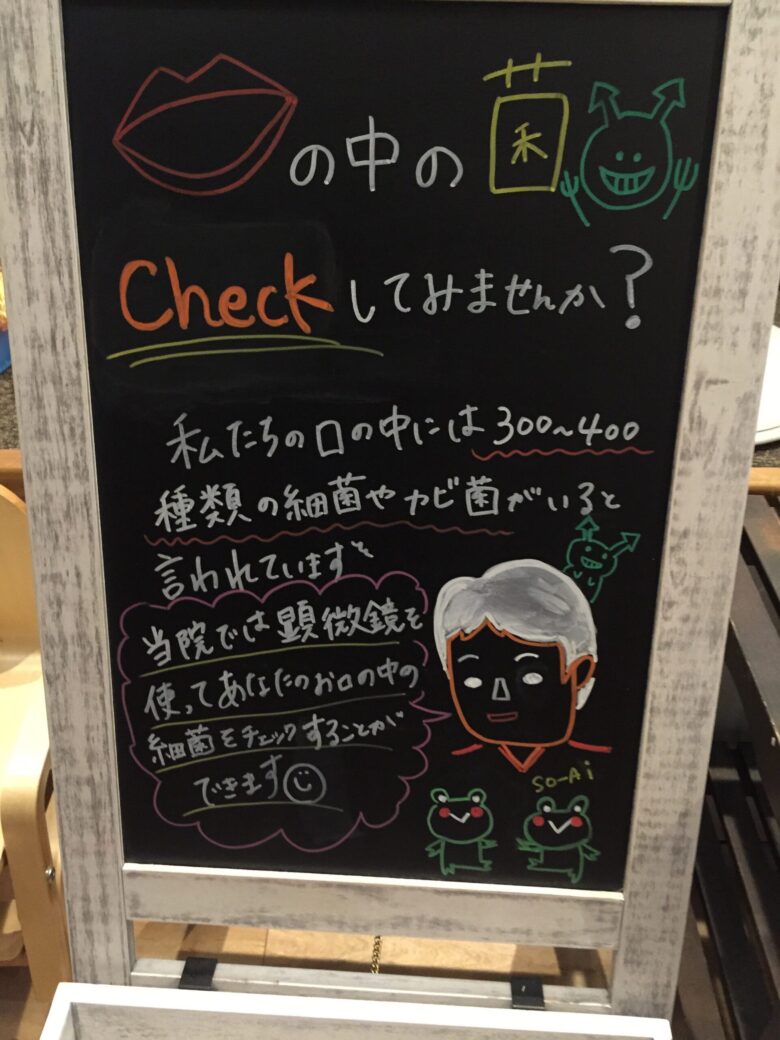 の中の菌
Checkしてみませんか?
私たちの口の中には300~400
種類の細菌やカビ菌がいると
言われています。
当院では顕微鏡を
使ってあなたのお口の中の
細菌をチェックすることが
できます
SO-Ai